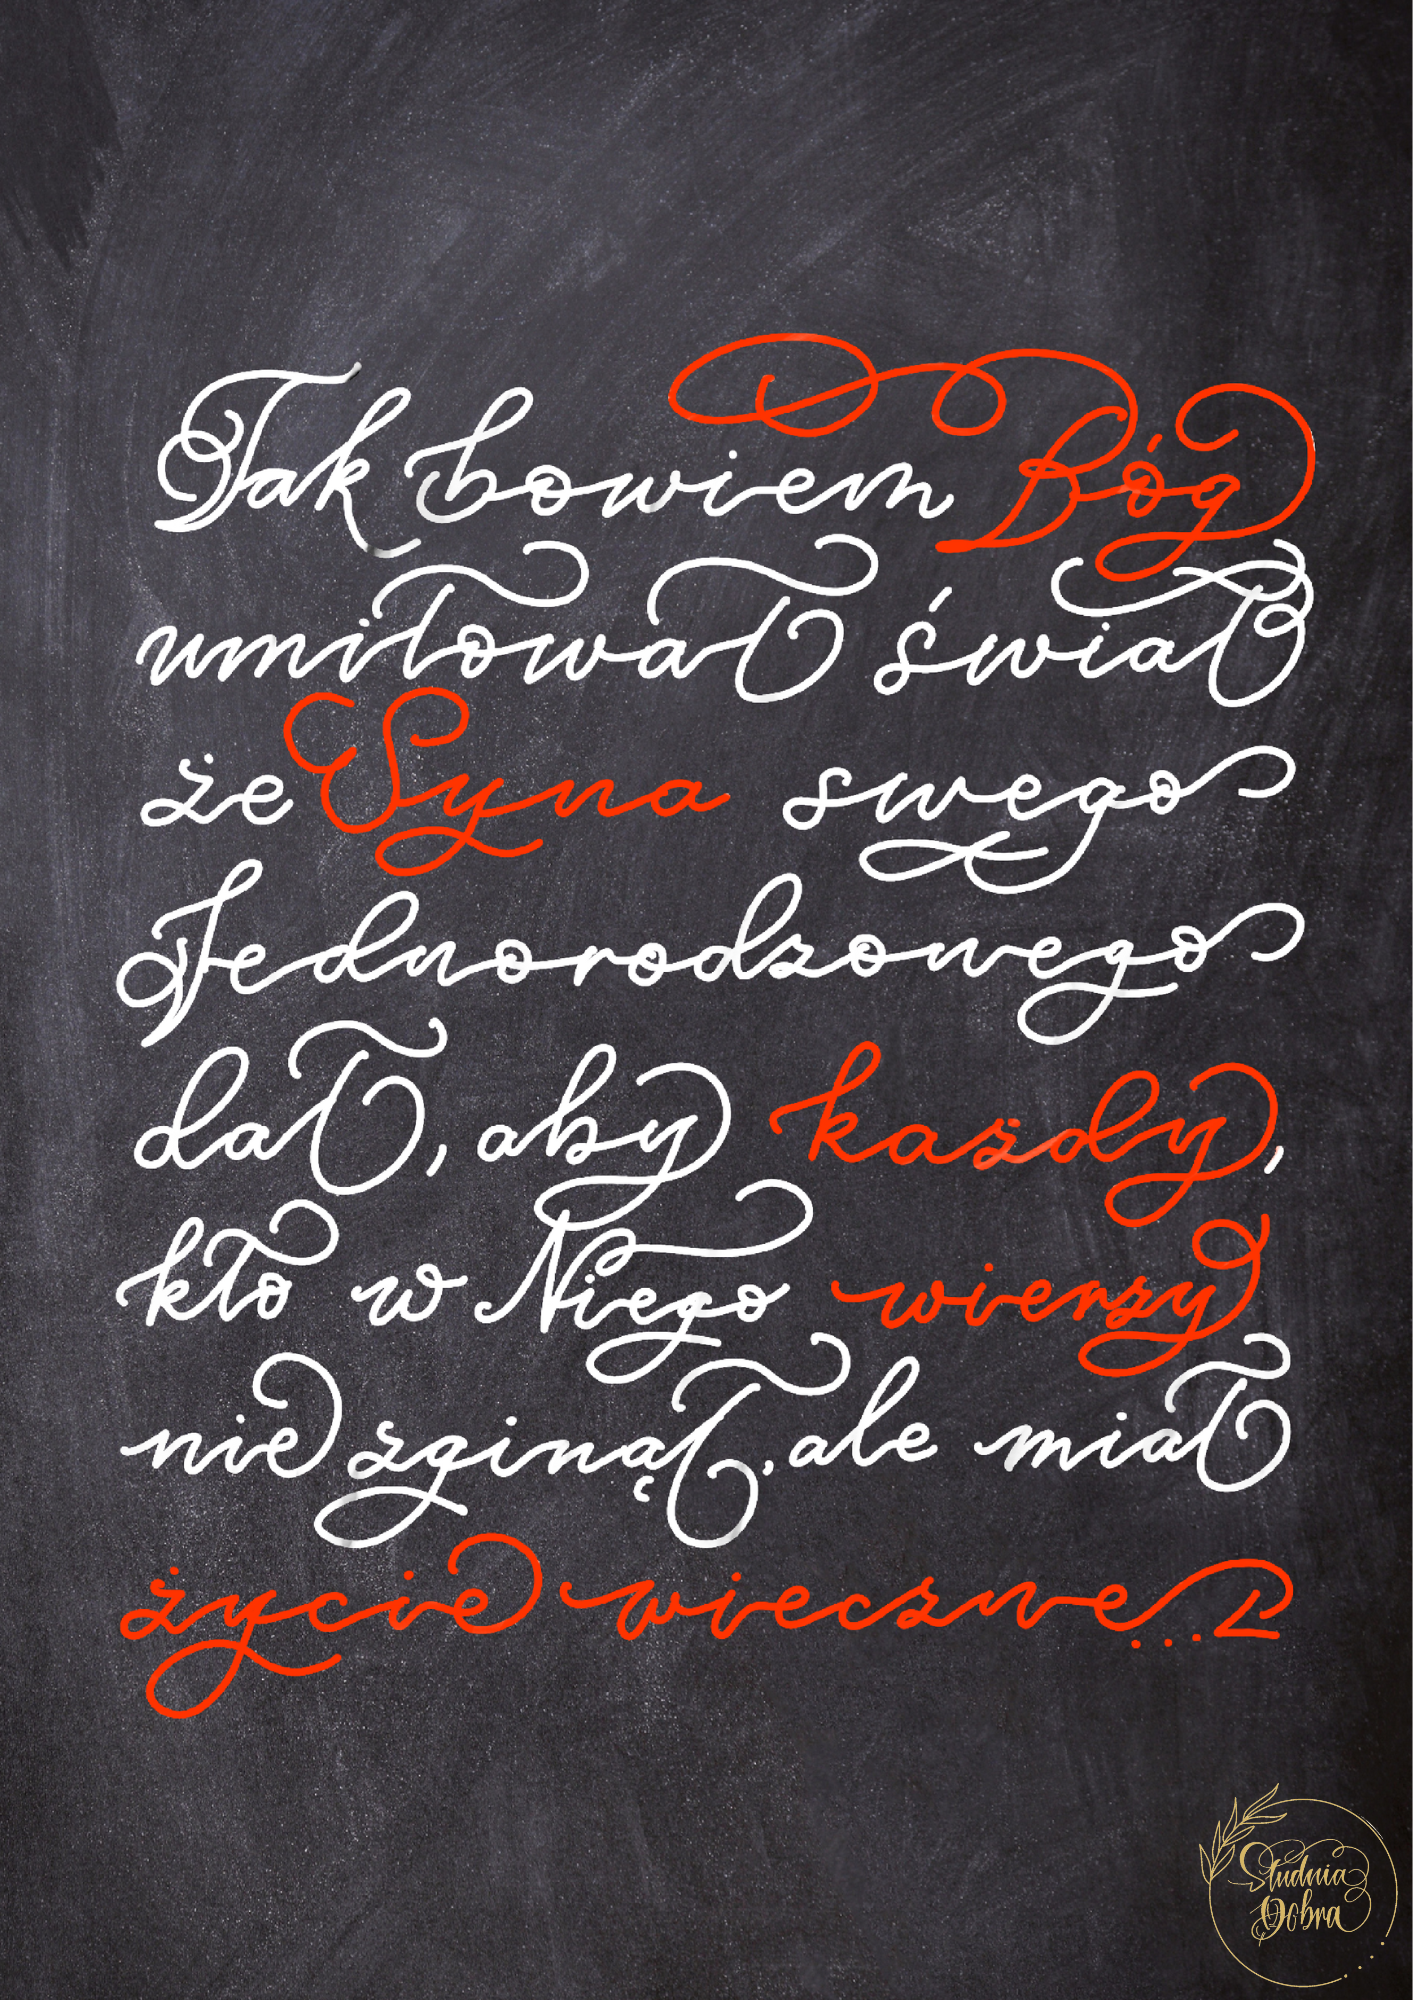 Tak bowiem Bóg
umiłował świat
że Syna swego
Jednorodzonego
dał, aby każdy,
kto w Niego wierzy
nie zginął, ale miał
życie wieczne...
Studnia
Dobra